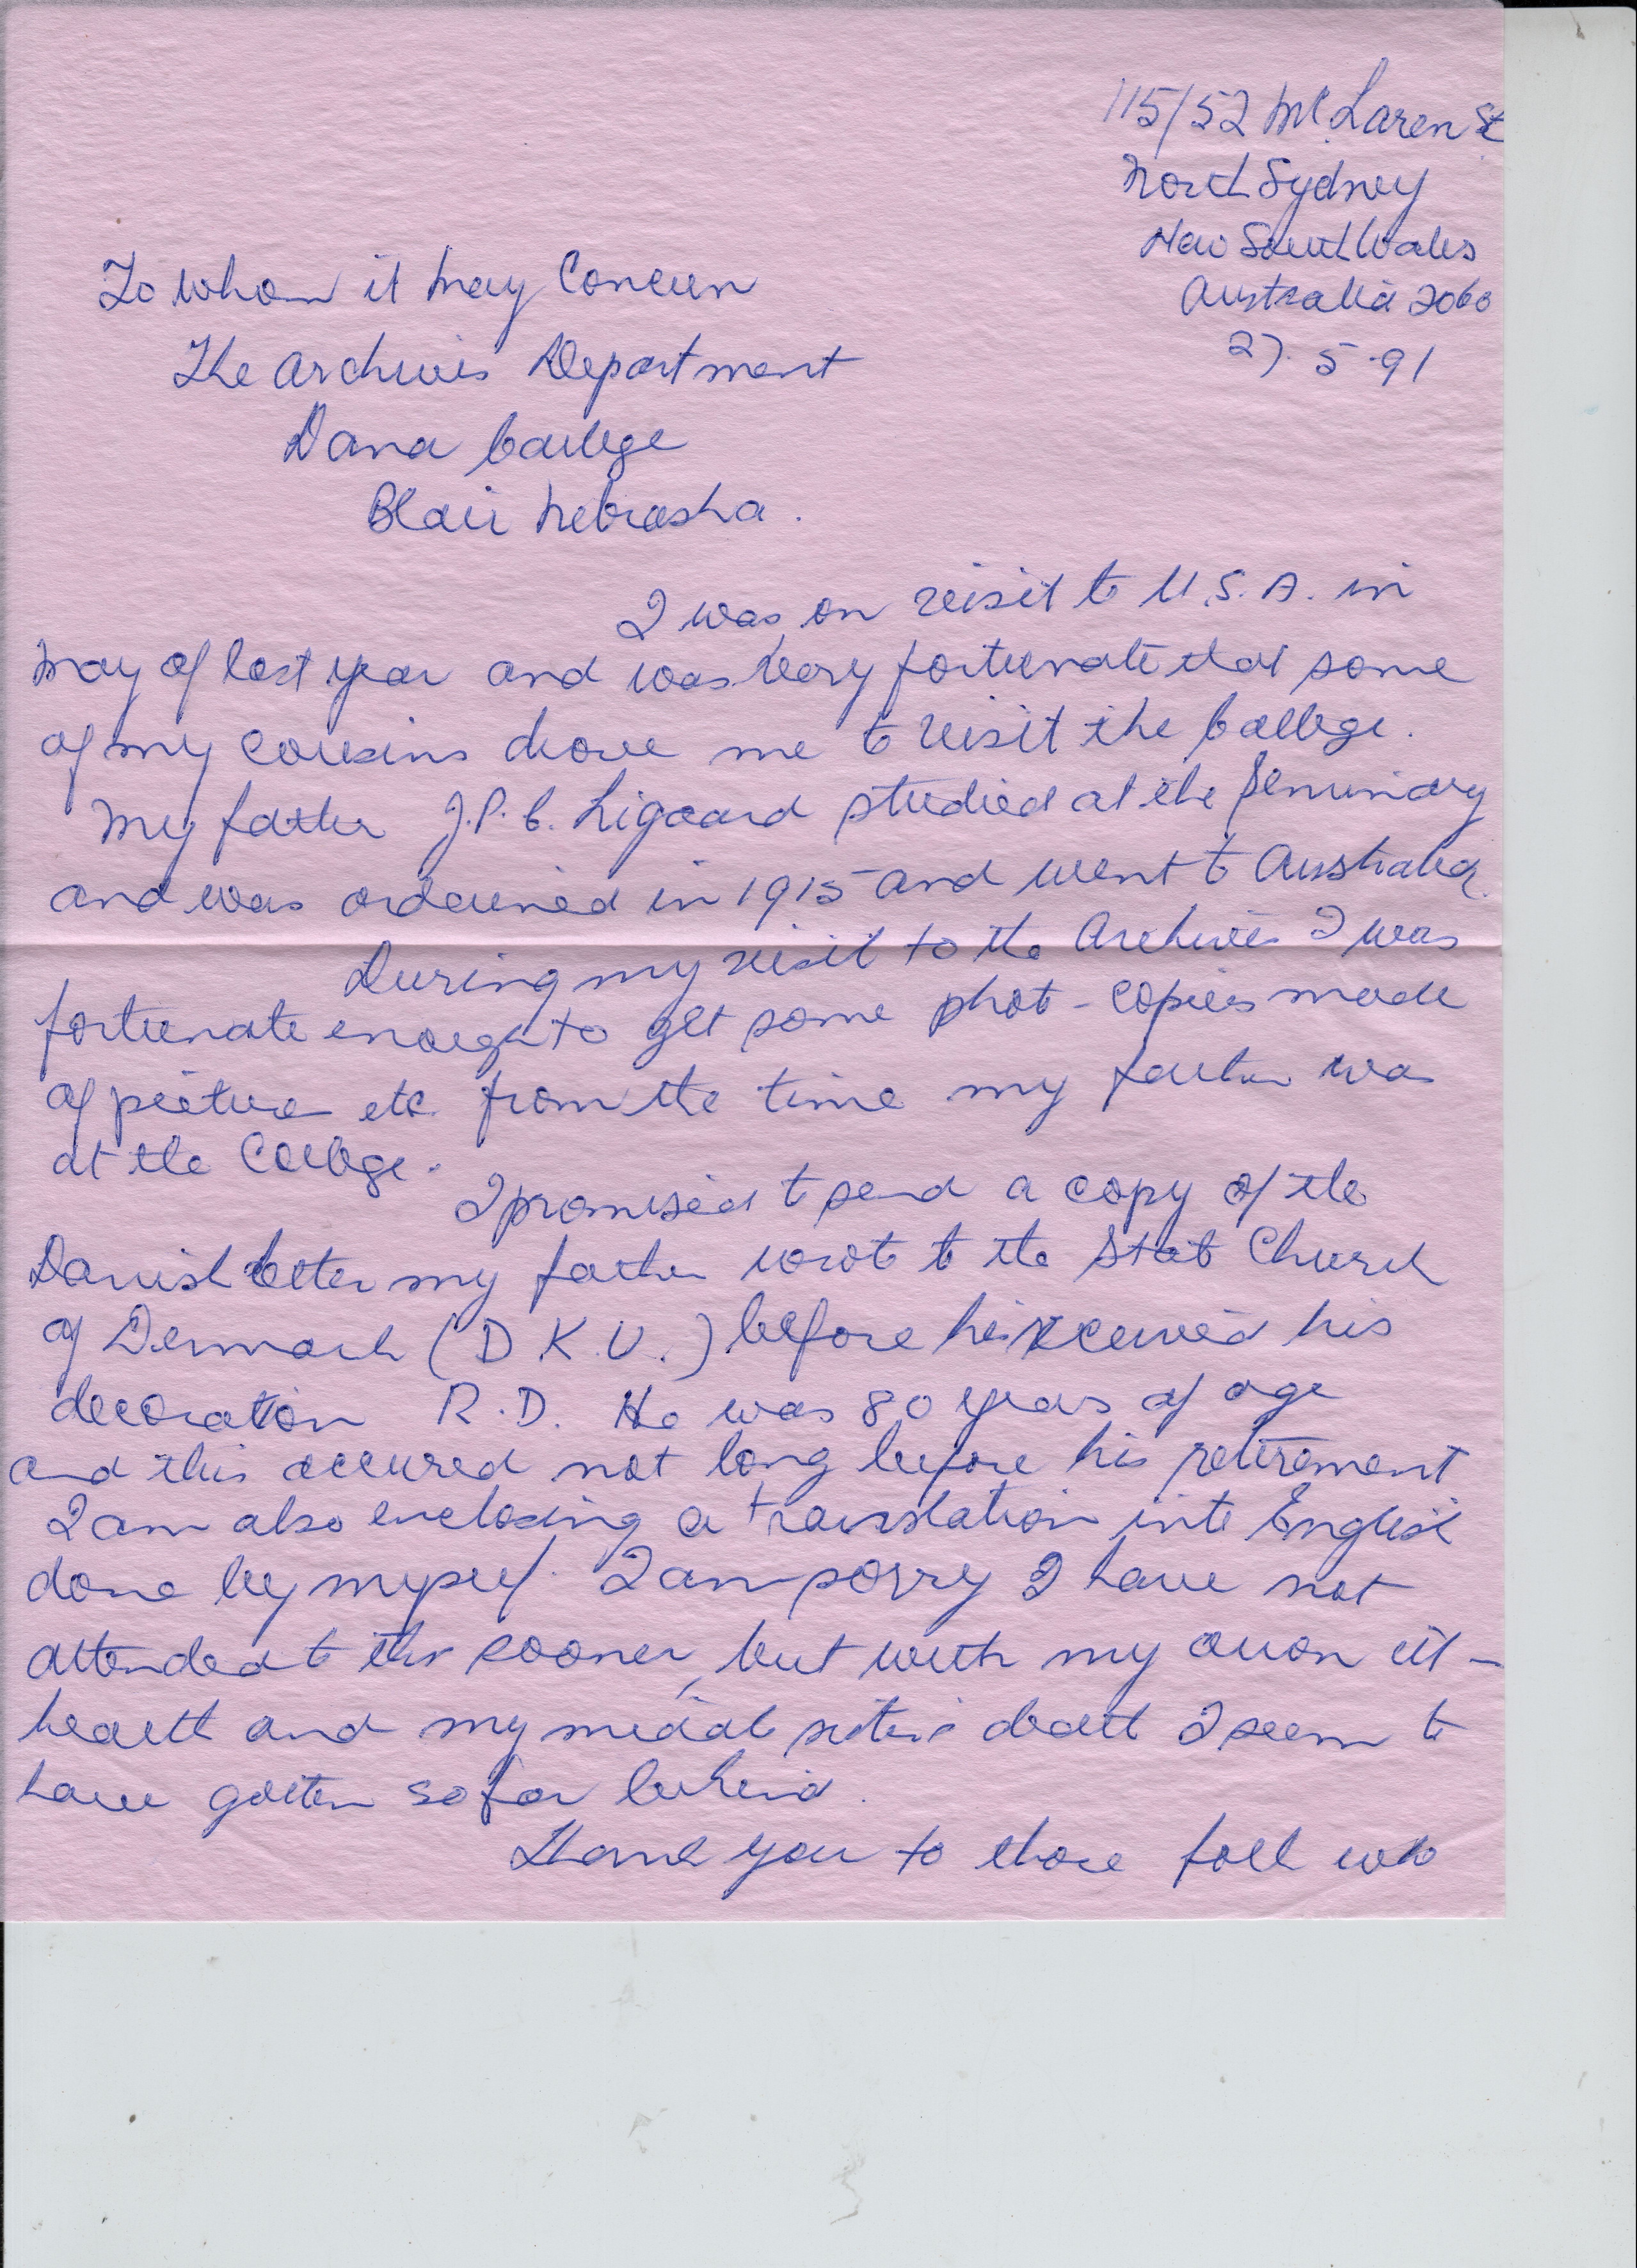 115/52 Mc Laren St
North Sydney
New South Wales
Australia 2060
27.5.91
To whom it May Concern
The Archives Department
Dana College
Blair Nebraska.
I was on visit to U.S.A. in
May of last year and was very fortunate that some
of my cousins drove me to visit the College.
My father J.P.C. Ligaard studied at the Seminary
and was ordained in 1915 and went to Australia.
During my visit to the Archives I was
fortunate enough to get some phot-copies made
of pictures etc. from the time my father was
at the College.
I promised to send a copy of the
Danish letter my father wrote to the State Church
of Denmark (D.K.U.) before he received his
decoration R.D. He was 80 years of age
and this occured not long before his retirement
I am also enclosing a translation into English
done by myself. I am sorry I have not
attended to this sooner, but with my own ill-
health and my middle sister's death I seem to
have gotten so far behind.
Thank you to those folk who